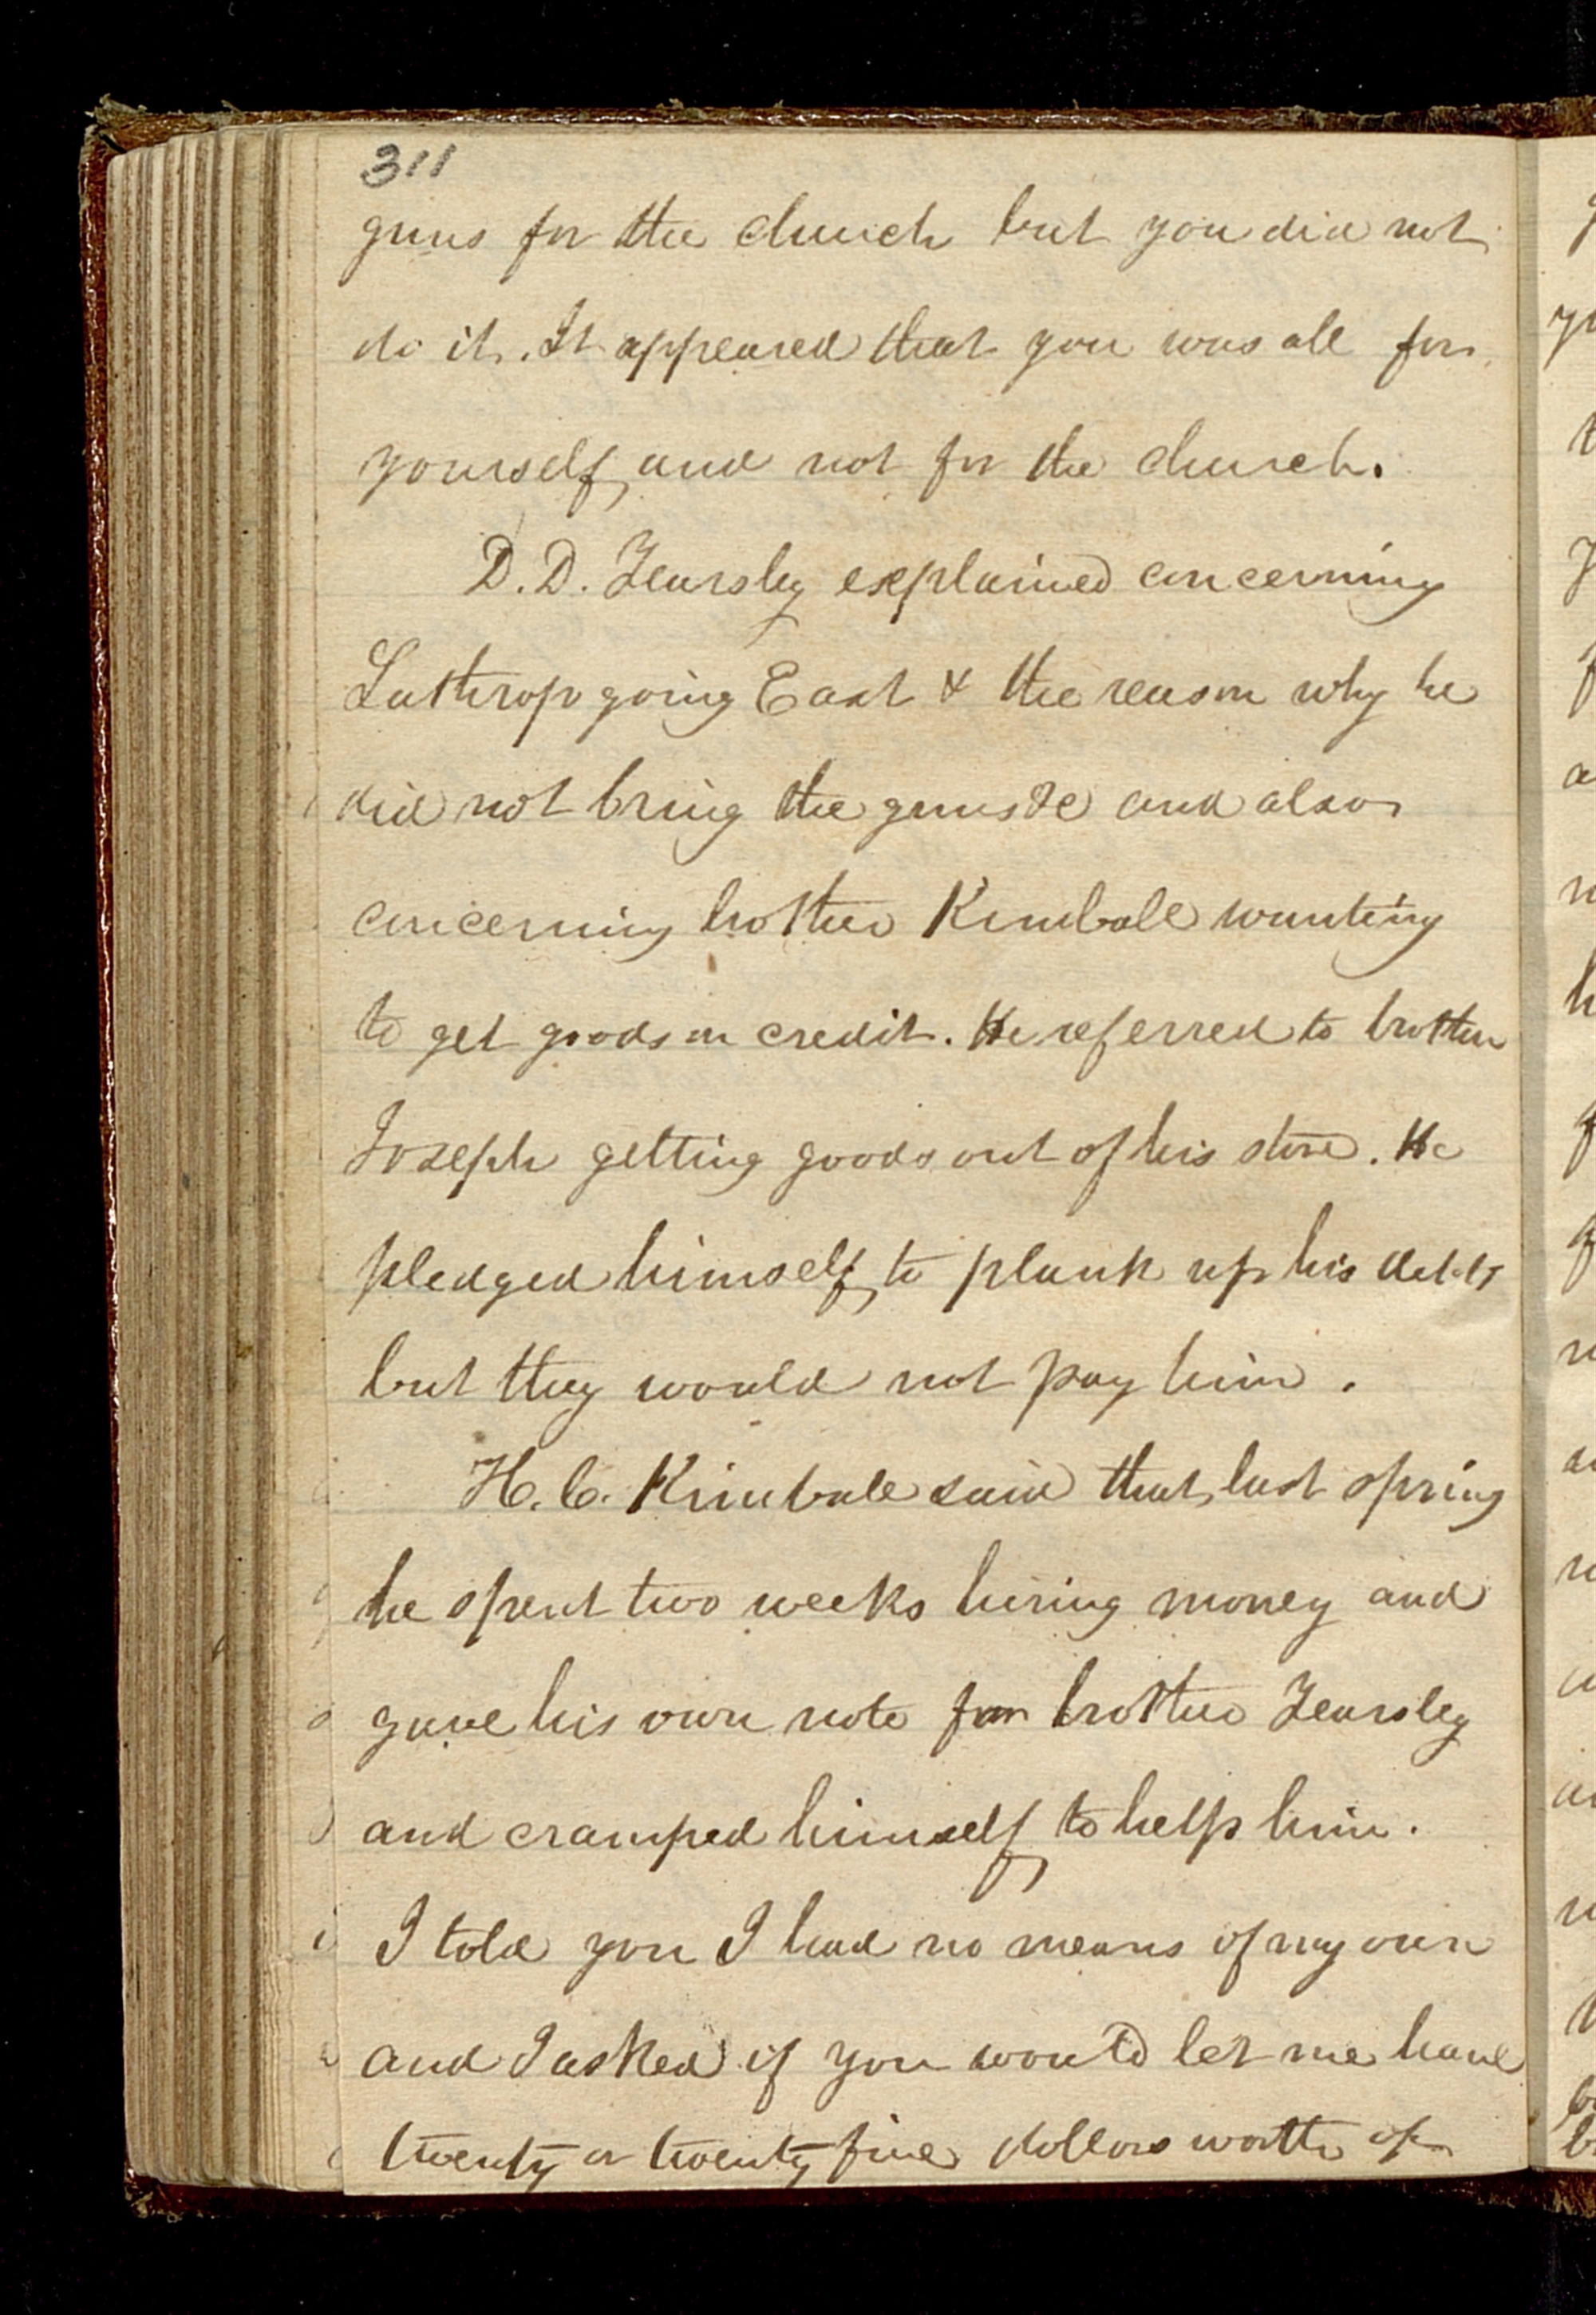 311
guns for the church but you did not
do it. It appeared that you was all for
yourself, and not for the church.
D. D. Yearsley explained concerning
Lathrop going East & the reason why he
did not bring the guns &c and also
concerning brother Kimball wanting
to get goods on credit. He referred to brother
Joseph getting goods out of his store. He
pledged himself to plank up his debts
but they would not pay him.
H. C. Kimball said that last spring
he spent two weeks hiring money and
gave his own note for brother Yearsley
and cramped himself to help him.
I told you I had no means of my own
and I asked if you would let me have
twenty or twenty five dollars worth of